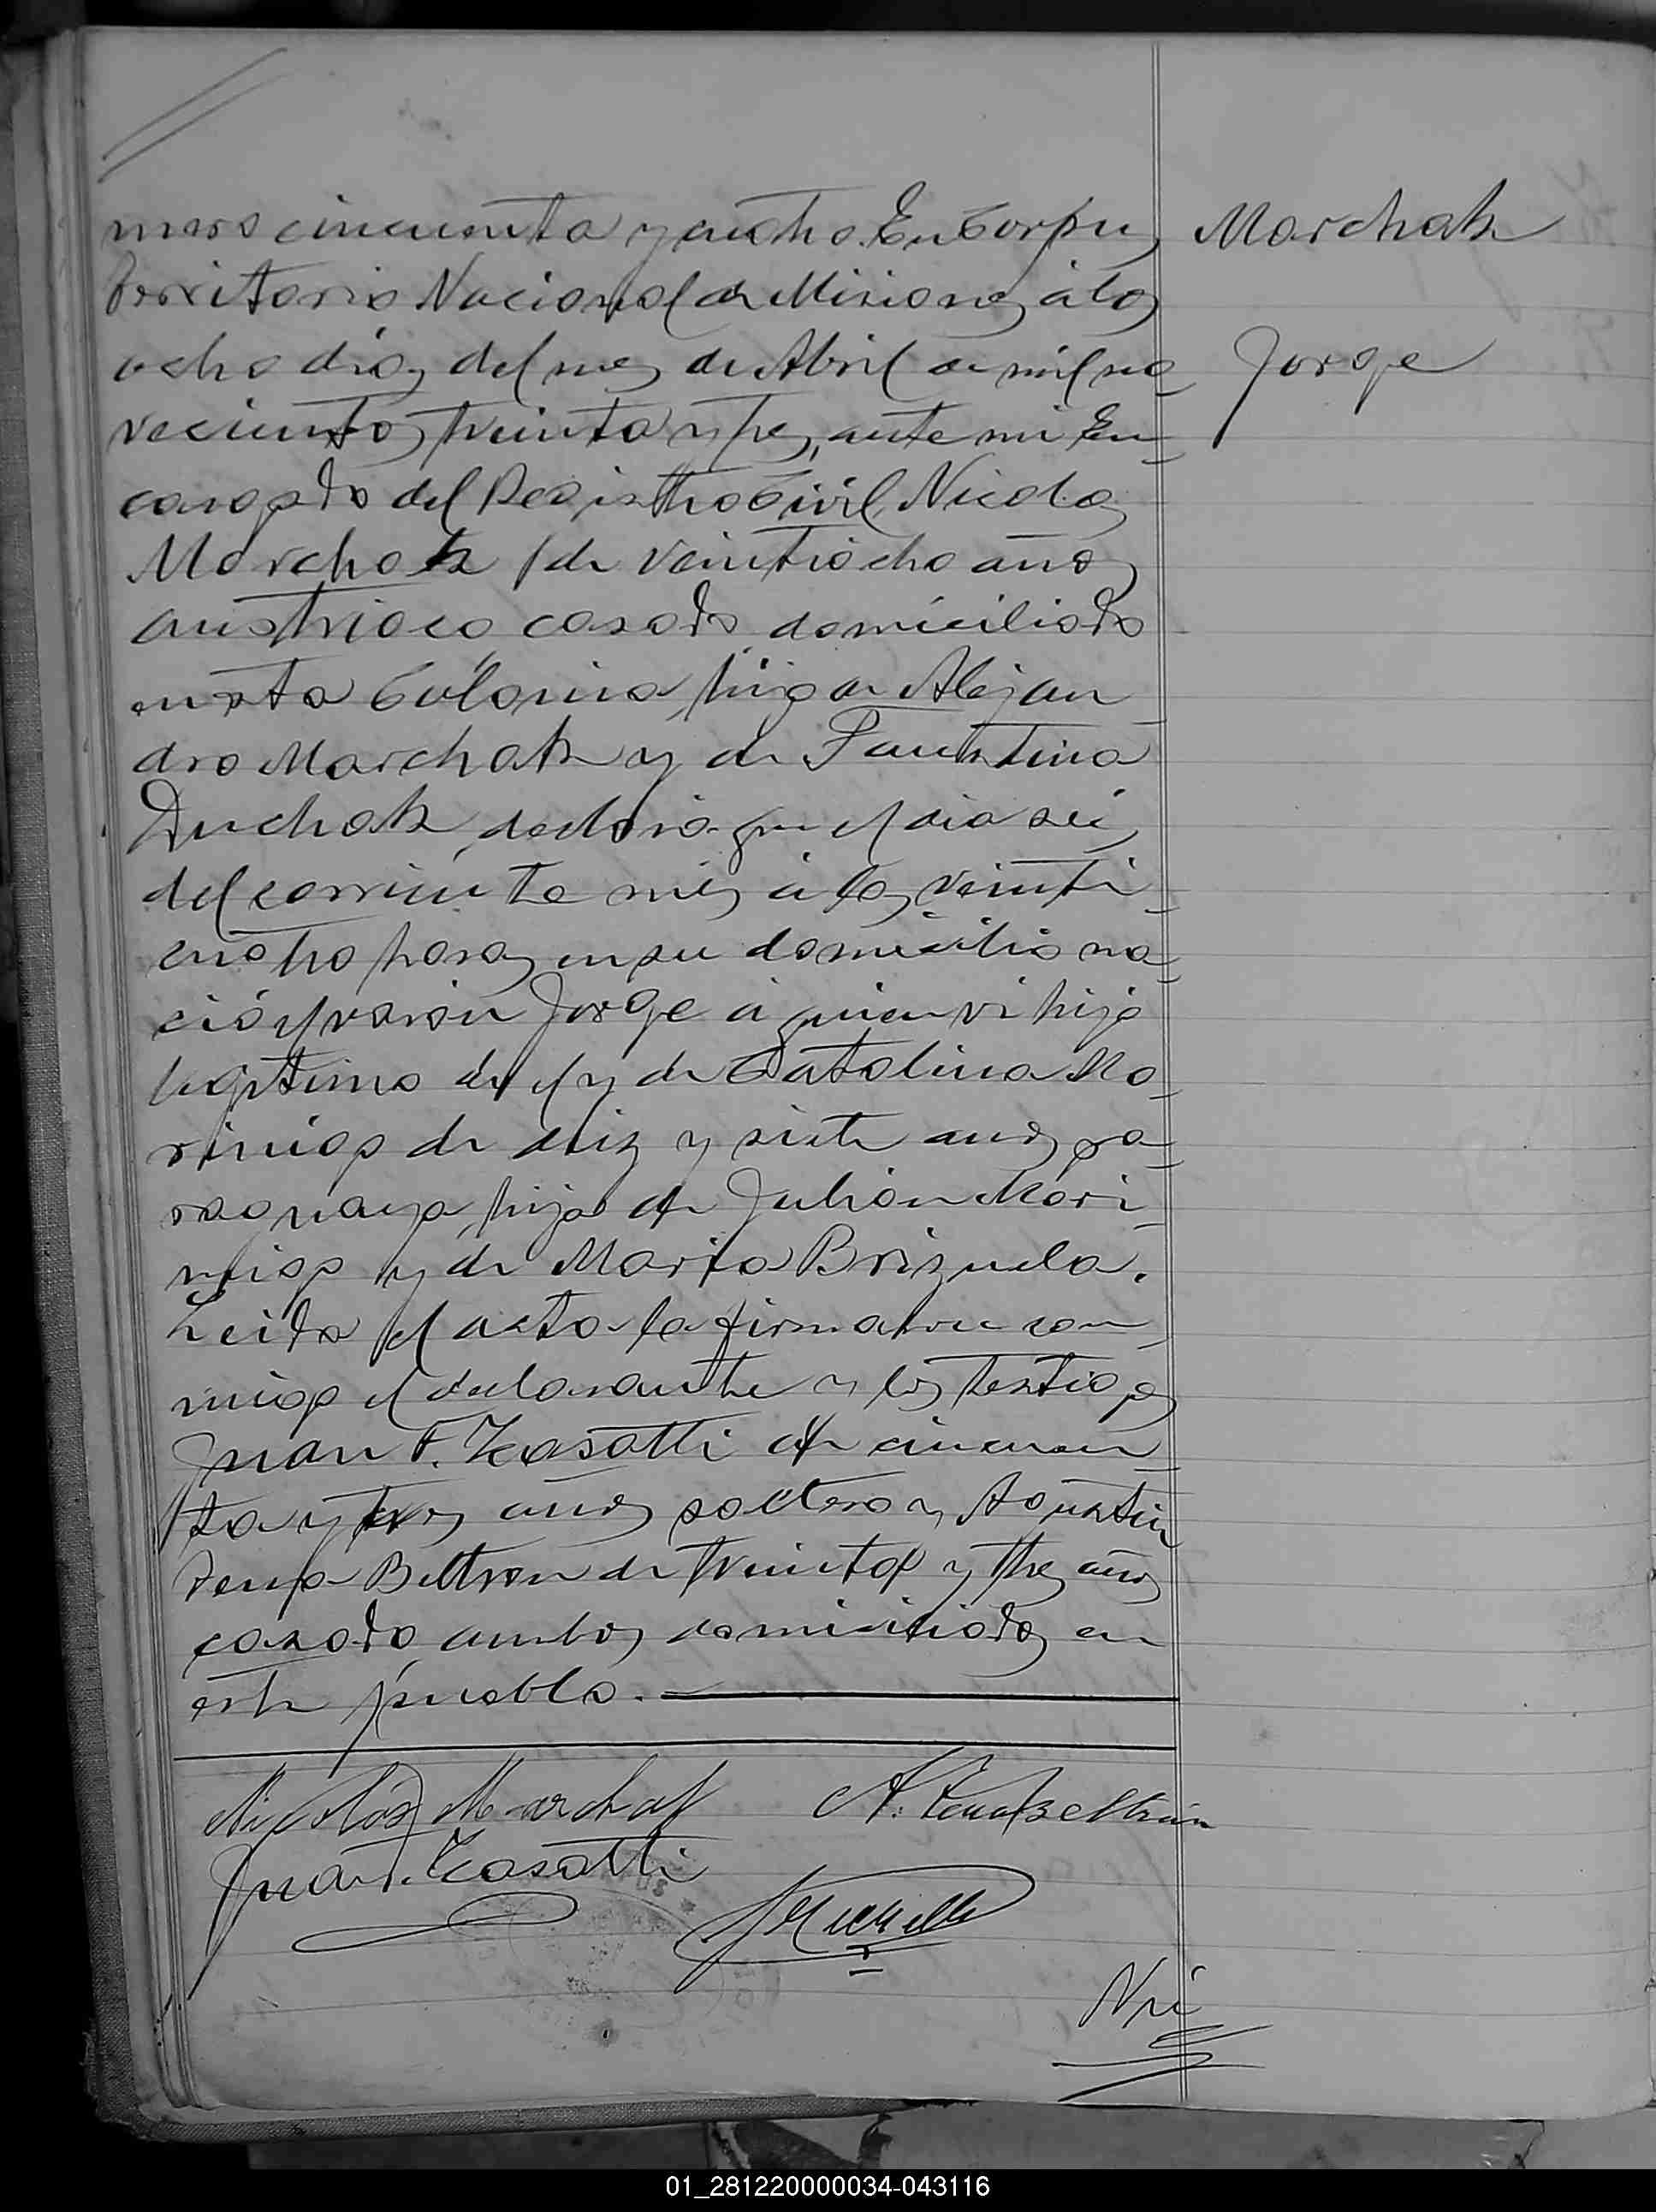 mero cincuenta y cuatro. En Corpus
Territorio Nacional de Misiones á los
ocho dias del mes de Abril de mil no-
vecientos treinta y tres, ante mi En-
cargado del Registro Civil, Nicolas
Marchak de veintiocho años
austriaco casado domiciliado
en esta Colonia, hijo de Alejan-
dro Marchak y de Faustina
Duchak, declaró que el dia seis
del corriente mes á las veinti-
cuatro horas en su domicilio na-
ció el varon Jorge á quien vi hijo
legitimo de el y de Catalina Mo-
rinigo de diez y siete años pa-
raguaya, hija de Julian Mori-
nigo y de Maria Brizuela.
Leida el acta la firmaron con-
migo el declarante y los testigos
Juan F. Kasatti de cincuen-
ta y tres años soltero y Agustin
Pena Beltran de treinta y tres años
casado ambos domiciliados en
este pueblo.
Nicolás Marchak A. Pena Beltrán
Juan F. Kasatti
Nú
Marchak
Jorge
01_281220000034-043116